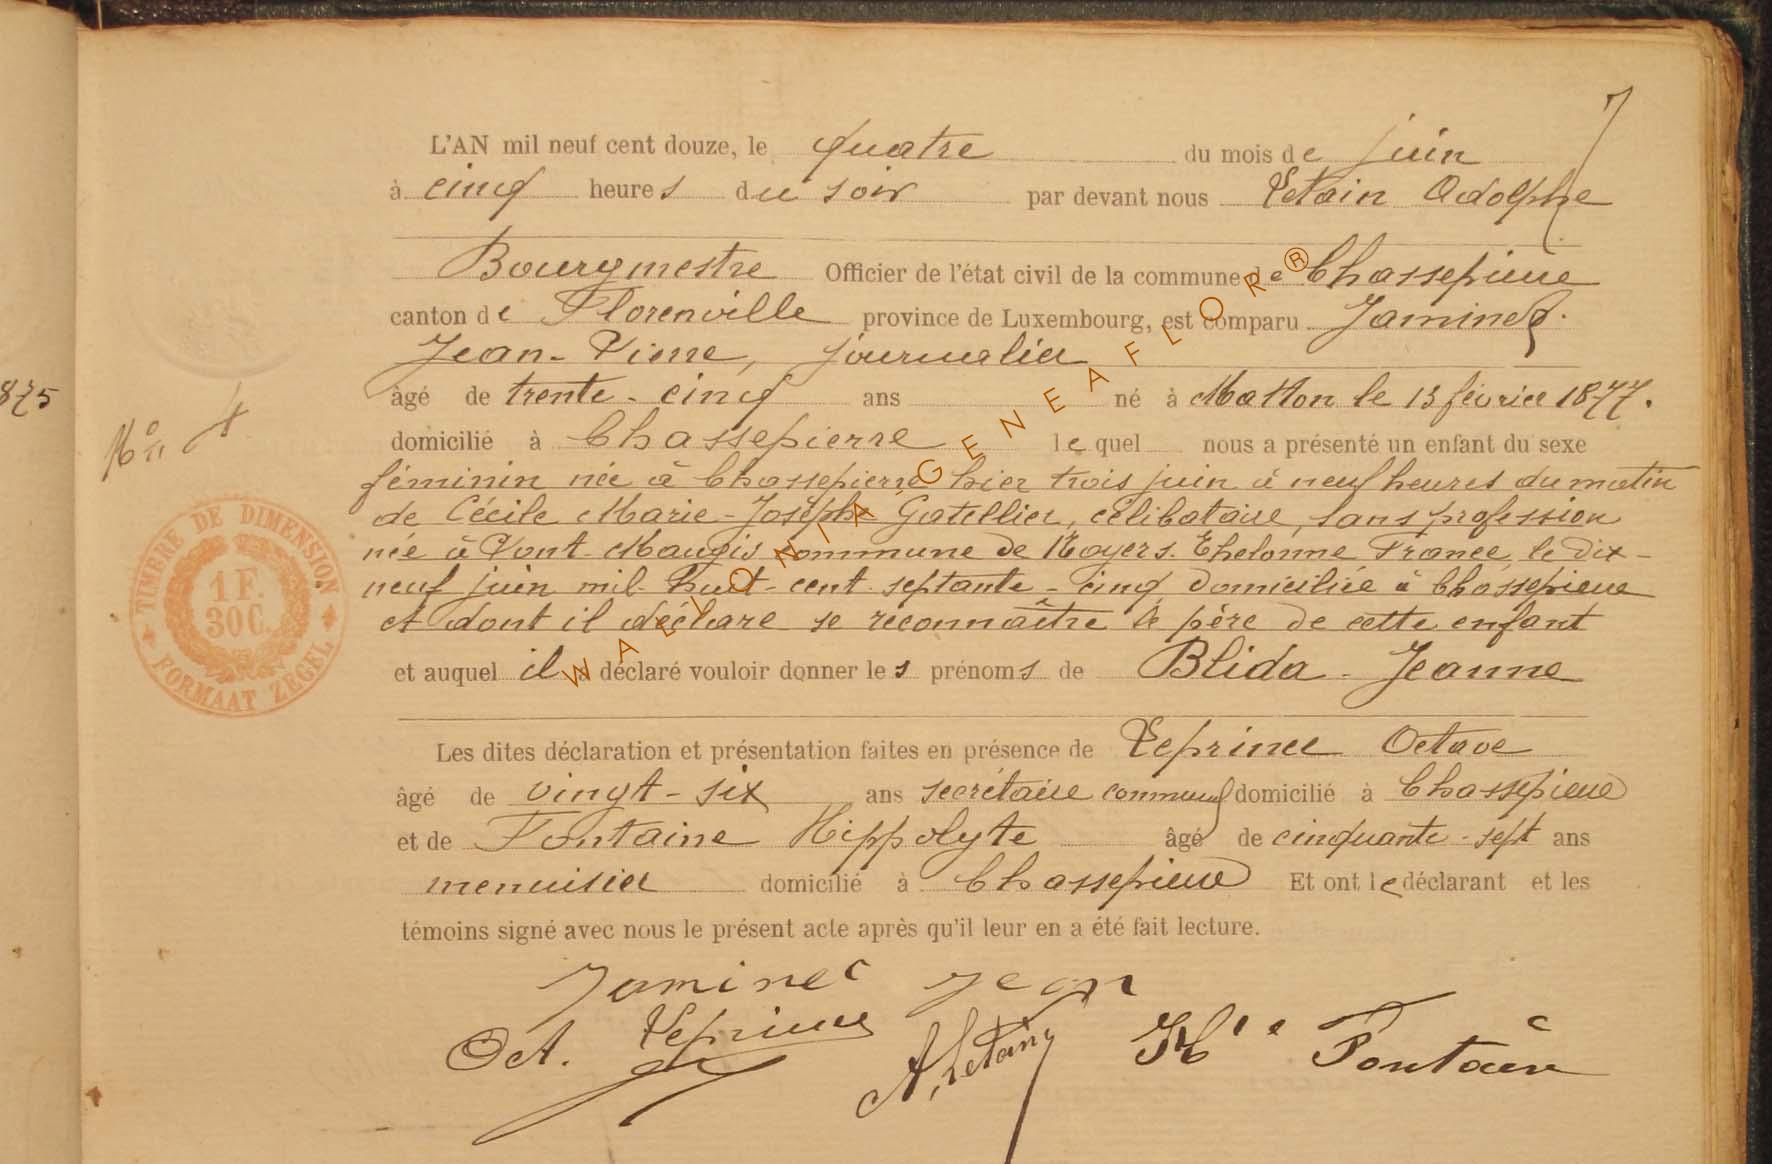 7
L'AN mil neuf cent douze, le quatre du mois de juin
à cinq heures du soir par devant nous Letain Adolphe
Bourgmestre Officier de l'état civil de la commune de Chassepierre
canton de Florenville province de Luxembourg, est comparu Jaminet
Jean-Pierre, journalier
âgé de trente-cinq ans né à Matton le 13 février 1877.
domicilié à Chassepierre lequel nous a présenté un enfant du sexe
féminin née à Chassepierre hier trois juin à neuf heures du matin
de Cécile Marie-Joseph Gatellier, célibataire, sans profession
née à Pont-Maugis commune de Noyers-Thelonne France, le dix-
neuf juin mil-huit-cent-septante-cinq, domiciliée à Chassepierre
et dont il déclare se reconnaître le père de cette enfant
et auquel il a déclaré vouloir donner les prénoms de Blida-Jeanne
Les dites déclaration et présentation faites en présence de Leprince Octave
âgé de vingt-six ans secrétaire communal domicilié à Chassepierre
et de Fontaine Hippolyte âgé de cinquante-sept ans
menuisier domicilié à Chassepierre Et ont le déclarant et les
témoins signé avec nous le présent acte après qu'il leur en a été fait lecture.
Jaminet Jean
Oct. Leprince A. Letain Hte Fontaine
875
No 4
TIMBRE DE DIMENSION
1 F.
30 C.
FORMAAT ZEGEL
WALLONIA-GENEAFLOR®